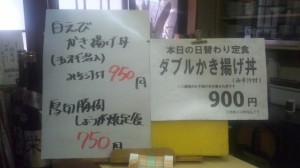 白えび
かき揚げ丼
(玉子とじ入)
みそ汁付 950円
厚切豚肉
しょうが焼定食
750円
本日の日替わり定食
ダブルかき揚げ丼
(みそ汁付)
900円